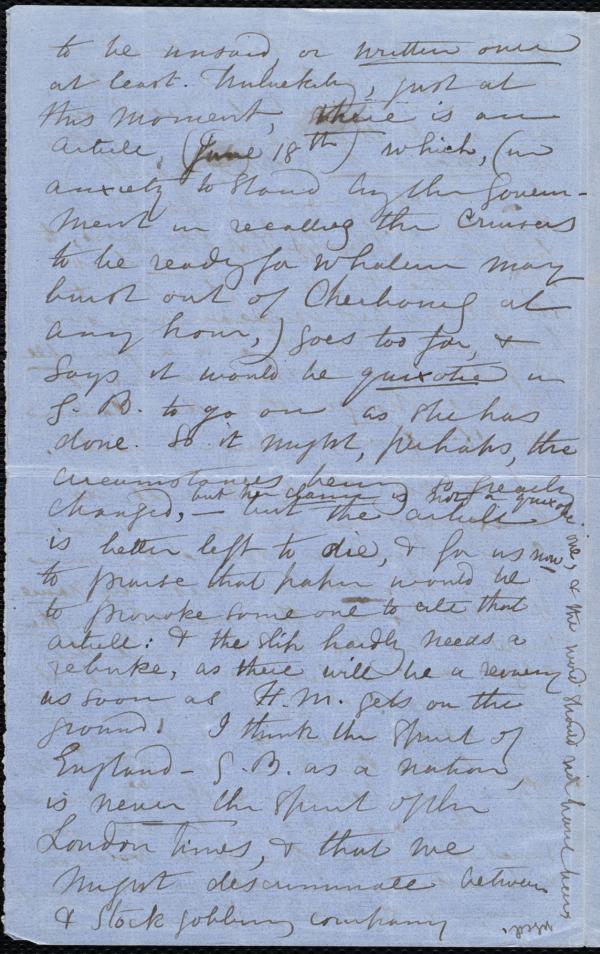 to be unsaid, or written over
at least. Unluckily, just at
this moment, there is an
article, (June 18th) which, (in
anxiety to stand by the Govern-
ment in recalling the Cruisers
to be ready for whatever may
burst out of Cherbourg at
any hour,) goes too far, &
says it would be quixotic in
G. B. to go on as she has
done. So it might, perhaps, the
circumstances being so greatly
changed, — but the article
but her claim is not a quixotic
one, & the word should not have been
used.
is better left to die, & for us now
to praise that paper would be
to provoke some one to cite that
article: & the slip hardly needs a
rebuke, as there will be a recovery
as soon as H. M. gets on the
ground. I think the spirit of
England – G. B. as a nation,
is never the spirit of the
London Times, & that we
might discriminate between
& Stock jobbing company